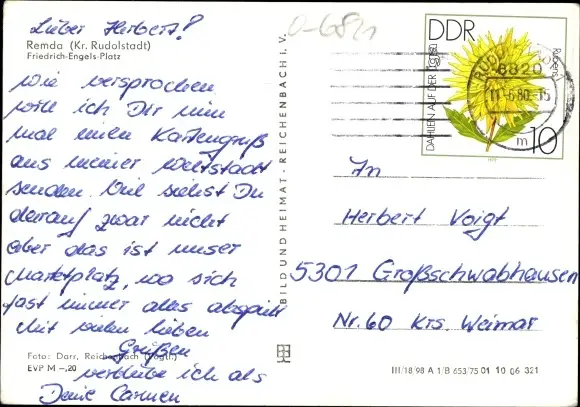 Lieber Herbert!
Remda (Kr. Rudolstadt)
Friedrich-Engels-Platz
Wie versprochen
will ich Dir nun
mal einen Kartengruß
aus meiner Weltstadt
senden. Viel siehst Du
darauf zwar nicht
aber das ist unser
Marktplatz, wo sich
fast immer alles abspielt
Mit vielen lieben
Grüßen
verbleibe ich als
Deine Carmen
Foto: Darr, Reichenbach (Vogtl.)
EVP M –,20
BILD UND HEIMAT · REICHENBACH i. V.
0-6821
DDR
DAHLIEN AUF DER
Rubens
6820
11.-6.80.-15
m
10
An
Herbert Voigt
5301 Großschwabhausen
Nr. 60 Krs. Weimar
III/18/98 A 1/B 653/75 01 10 06 321